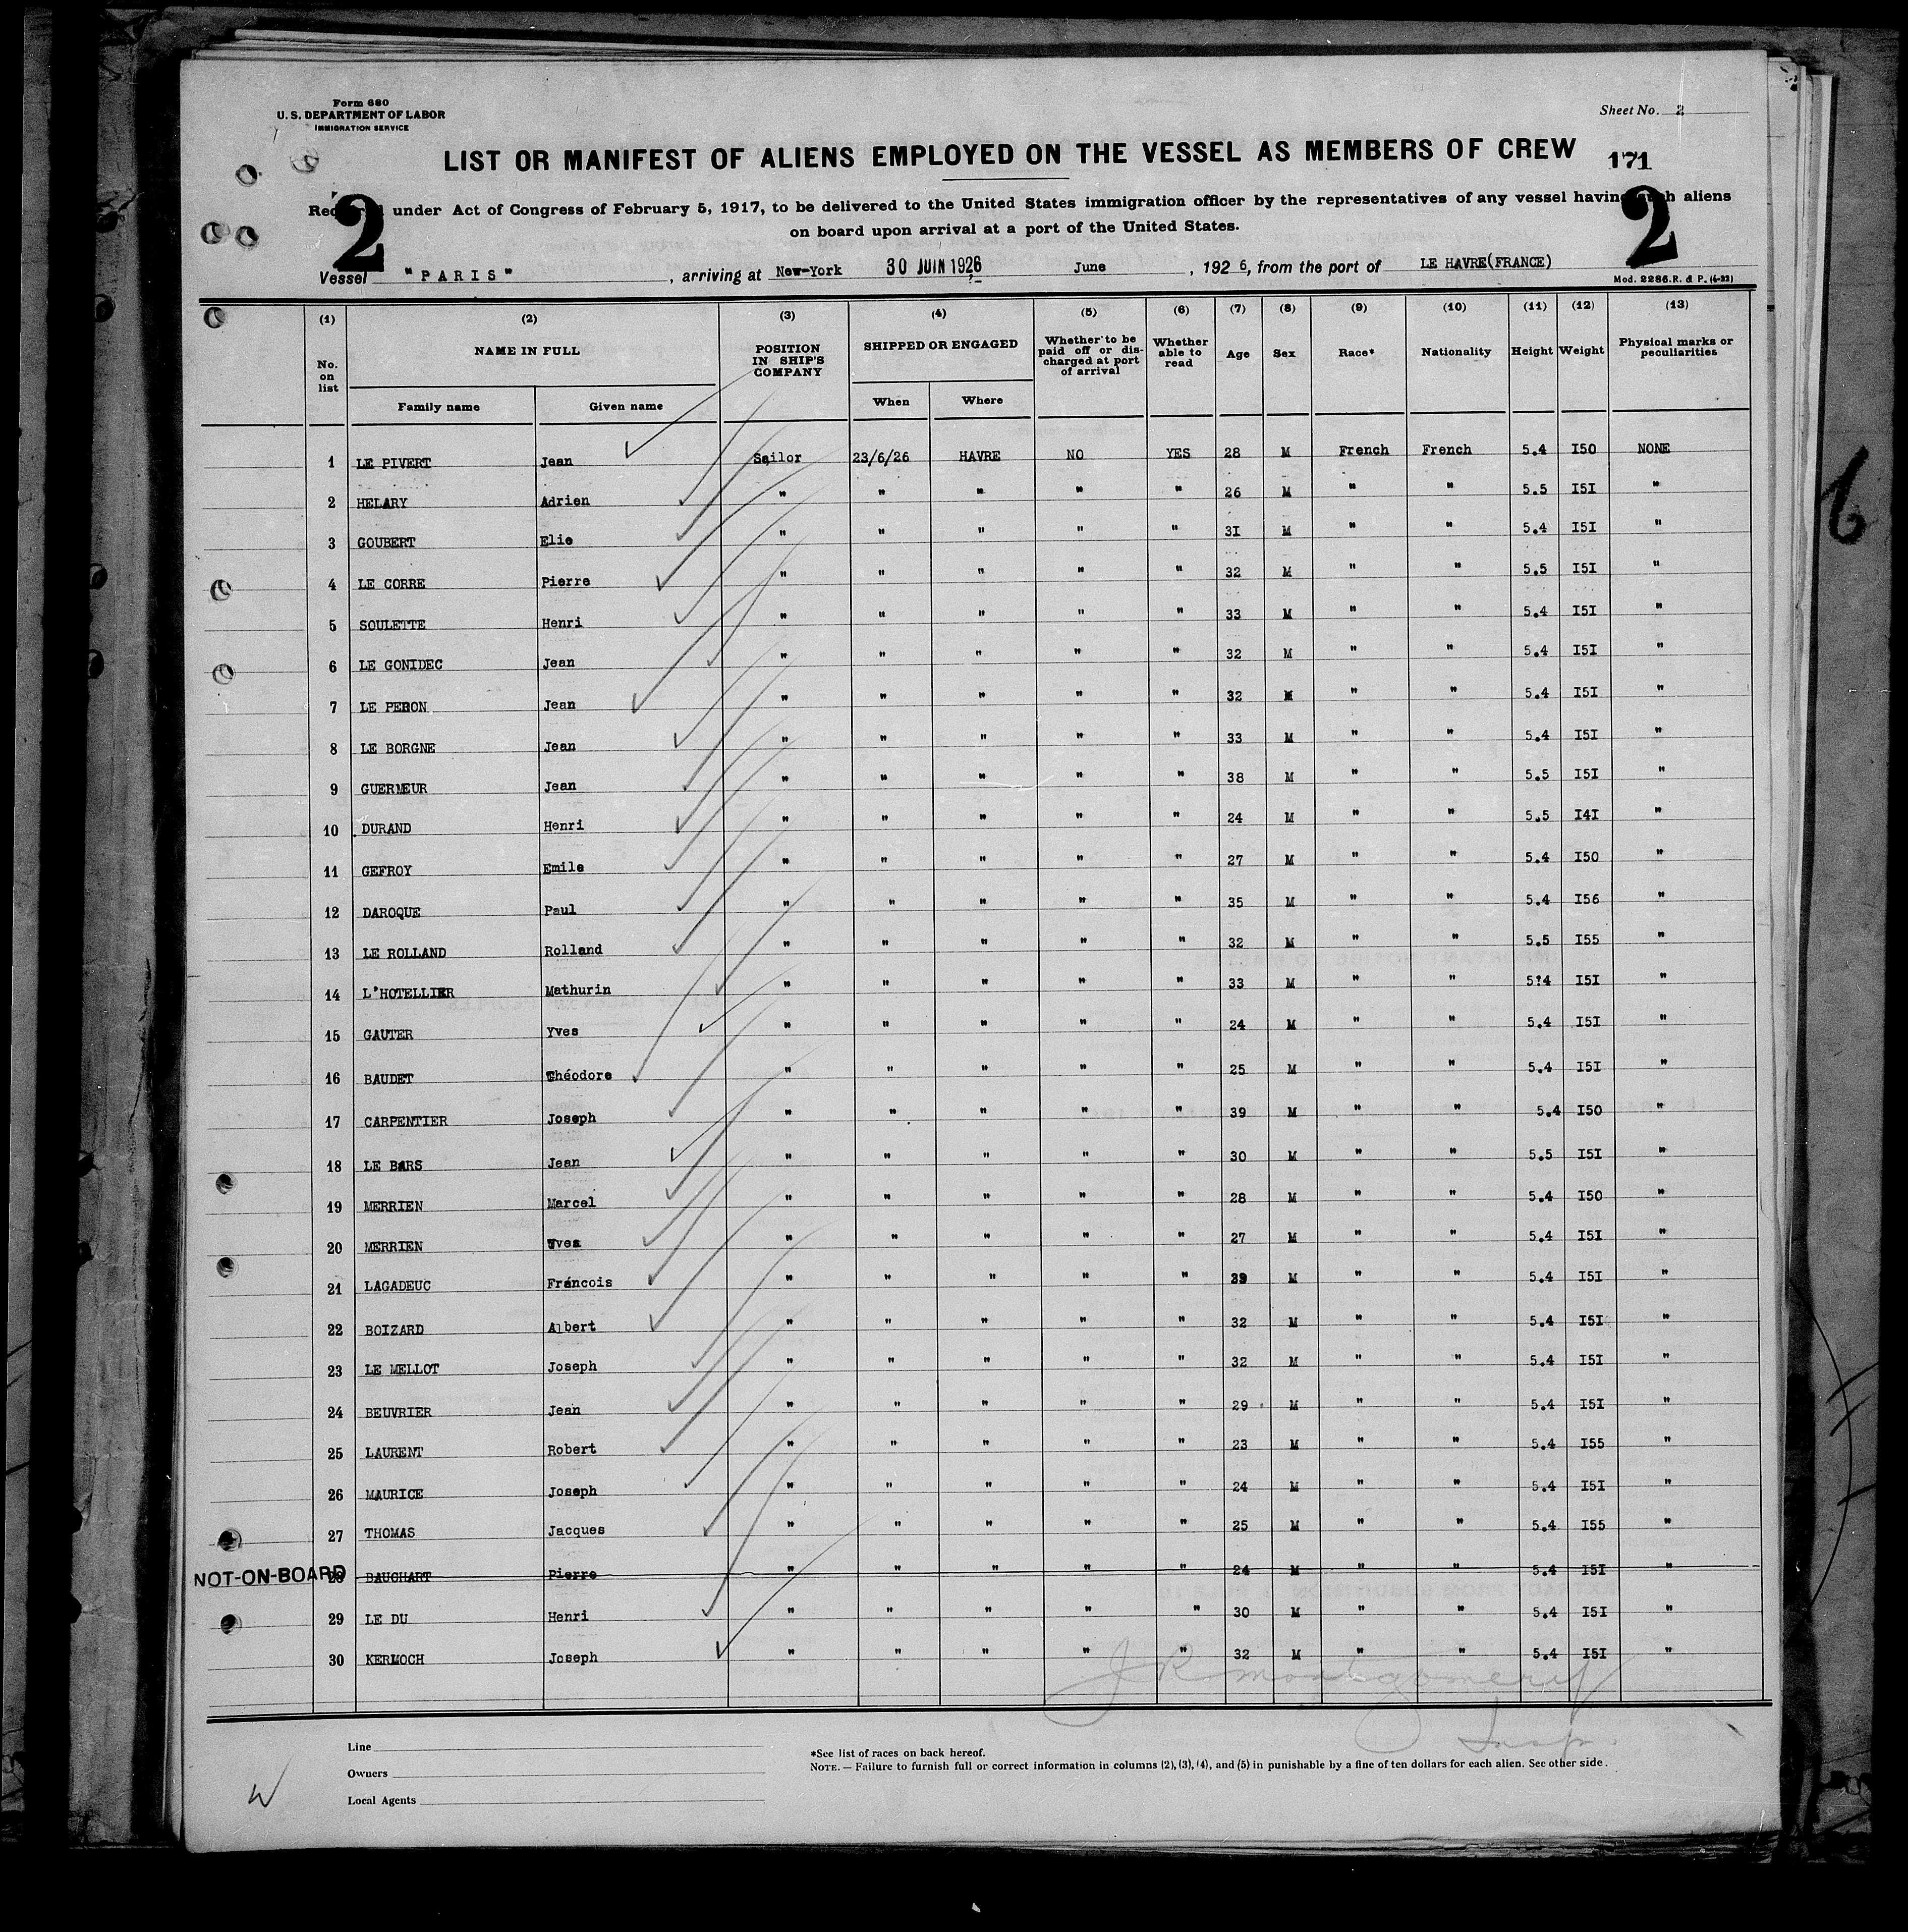 Form 680
U. S. DEPARTMENT OF LABOR
IMMIGRATION SERVICE
Sheet No. 2
LIST OR MANIFEST OF ALIENS EMPLOYED ON THE VESSEL AS MEMBERS OF CREW
171
2 2
under Act of Congress of February 5, 1917, to be delivered to the United States immigration officer by the representatives of any vessel having such aliens
on board upon arrival at a port of the United States.
Vessel "PARIS", arriving at New-York 30 JUIN 1926 June, 192 6, from the port of LE HAVRE(FRANCE)
Mod. 2286.R. d P. (4-22)
(1) (2) (3) (4) (5) (6) (7) (8) (9) (10) (11) (12) (13)
No. on list NAME IN FULL POSITION IN SHIP'S COMPANY SHIPPED OR ENGAGED Whether to be paid off or discharged at port of arrival Whether able to read Age Sex Race* Nationality Height Weight Physical marks or peculiarities
Family name Given name When Where
1 LE PIVERT Jean Sailor 23/6/26 HAVRE NO YES 28 M French French 5.4 I50 NONE
2 HELARY Adrien " " " " " 26 M " " 5.5 I5I "
3 GOUBERT Elie " " " " " 3I M " " 5.4 I5I "
4 LE CORRE Pierre " " " " " 32 M " " 5.5 I5I "
5 SOULETTE Henri " " " " " 33 M " " 5.4 I5I "
6 LE GONIDEC Jean " " " " " 32 M " " 5.4 I5I "
7 LE PERON Jean " " " " " 32 M " " 5.4 I5I "
8 LE BORGNE Jean " " " " " 33 M " " 5.4 I5I "
9 GUERMEUR Jean " " " " " 38 M " " 5.5 I5I "
10 DURAND Henri " " " " " 24 M " " 5.5 I4I "
11 GEFROY Emile " " " " " 27 M " " 5.4 I50 "
12 DAROQUE Paul " " " " " 35 M " " 5.4 I56 "
13 LE ROLLAND Rolland " " " " " 32 M " " 5.5 I55 "
14 L'HOTELLIER Mathurin " " " " " 33 M " " 5?4 I5I "
15 GAUTER Yves " " " " " 24 M " " 5.4 I5I "
16 BAUDET Théodore " " " " " 25 M " " 5.4 I5I "
17 CARPENTIER Joseph " " " " " 39 M " " 5.4 I50 "
18 LE BARS Jean " " " " " 30 M " " 5.5 I5I "
19 MERRIEN Marcel " " " " " 28 M " " 5.4 I50 "
20 MERRIEN Yves " " " " " 27 M " " 5.4 I5I "
21 LAGADEUC Francois " " " " " 39 M " " 5.4 I5I "
22 BOIZARD Albert " " " " " 32 M " " 5.4 I5I "
23 LE MELLOT Joseph " " " " " 32 M " " 5.4 I5I "
24 BEUVRIER Jean " " " " " 29 M " " 5.4 I5I "
25 LAURENT Robert " " " " " 23 M " " 5.4 I55 "
26 MAURICE Joseph " " " " " 24 M " " 5.4 I5I "
27 THOMAS Jacques " " " " " 25 M " " 5.4 I55 "
NOT-ON-BOARD 28 BAUCHART Pierre " " " " " 24 M " " 5.4 I5I "
29 LE DU Henri " " " " " 30 M " " 5.4 I5I "
30 KERLOCH Joseph " " " " " 32 M " " 5.4 I5I "
J R Montgomery
Insp.
Line
Owners
Local Agents
*See list of races on back hereof.
NOTE. — Failure to furnish full or correct information in columns (2), (3), (4), and (5) in punishable by a fine of ten dollars for each alien. See other side.
6